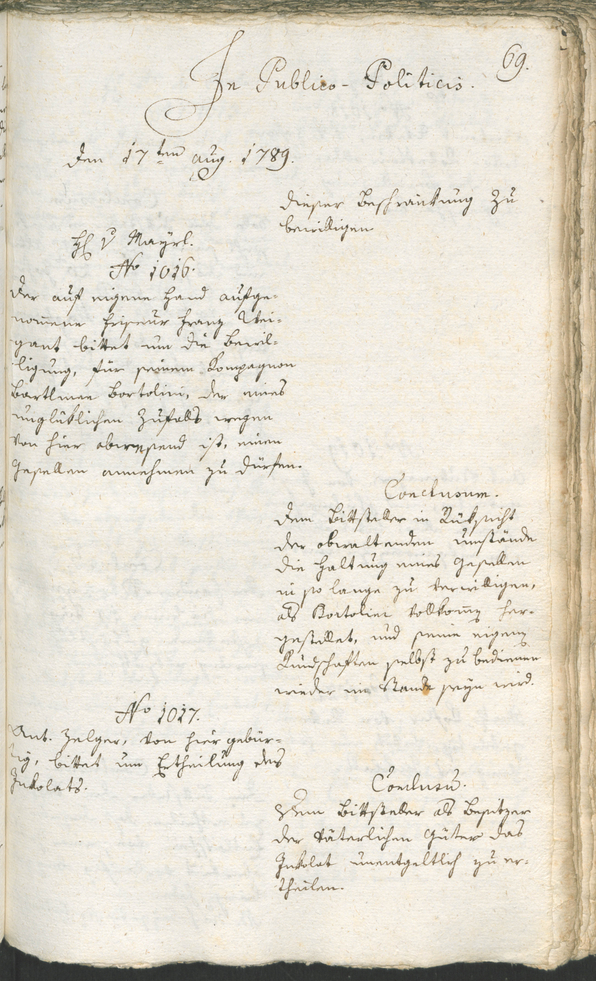 69.
In Publico-Politicis.
den 17ten aug. 1789.
dieser Beschränkung zu
bewilligen
H. v Mayrl.
No 1016.
Der auf eigene Hand aufge-
nommene Friseur Franz Wei-
gant bittet um die Bewil-
ligung, für seinen Kompagnon
Bartlmee Bortolini, der eines
unglüklichen Zufalls wegen
von hier abwesend ist, einen
Gesellen annehmen zu dürfen.
Conclusum.
Dem Bittsteller in Rüksicht
der obwaltenden umstände
die Haltung eines Gesellen
in so lange zu verwilligen,
als Bortolini vollkomm her-
gestellet, und seine eigene
Kundschaften selbst zu bedienen
wieder im Stande seyn wird.
No 1017.
Ant. Zelger, von hier gebür-
tig, bittet um Ertheilung des
Inkolats.
Conclusū.
Dem Bittsteller als Besitzer
der väterlichen Güter das
Inkolat unentgeltlich zu er-
theilen.